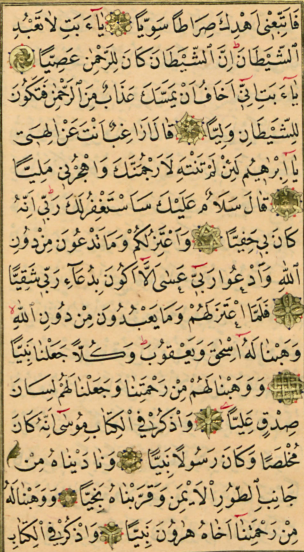 فَاتَّبِعْنِي أَهْدِكَ صِرَاطًا سَوِيًّا يَا أَبَتِ لَا تَعْبُدِ
الشَّيْطَانَ إِنَّ الشَّيْطَانَ كَانَ لِلرَّحْمٰنِ عَصِيًّا
يَا أَبَتِ إِنِّي أَخَافُ أَنْ يَمَسَّكَ عَذَابٌ مِنَ الرَّحْمٰنِ فَتَكُونَ
لِلشَّيْطَانِ وَلِيًّا قَالَ أَرَاغِبٌ أَنْتَ عَنْ اٰلِهَتِي
يَا إِبْرٰهِيمُ لَئِنْ لَمْ تَنْتَهِ لَأَرْجُمَنَّكَ وَاهْجُرْنِي مَلِيًّا
قَالَ سَلَامٌ عَلَيْكَ سَأَسْتَغْفِرُ لَكَ رَبِّي إِنَّهُ
كَانَ بِي حَفِيًّا وَأَعْتَزِلُكُمْ وَمَا تَدْعُونَ مِنْ دُونِ
اللّٰهِ وَأَدْعُوا رَبِّي عَسٰى أَلَّا أَكُونَ بِدُعَاءِ رَبِّي شَقِيًّا
فَلَمَّا اعْتَزَلَهُمْ وَمَا يَعْبُدُونَ مِنْ دُونِ اللّٰهِ
وَهَبْنَا لَهُ إِسْحٰقَ وَيَعْقُوبَ وَكُلًّا جَعَلْنَا نَبِيًّا
وَوَهَبْنَا لَهُمْ مِنْ رَحْمَتِنَا وَجَعَلْنَا لَهُمْ لِسَانَ
صِدْقٍ عَلِيًّا وَاذْكُرْ فِي الْكِتَابِ مُوسٰى إِنَّهُ كَانَ
مُخْلَصًا وَكَانَ رَسُولًا نَبِيًّا وَنَادَيْنَاهُ مِنْ
جَانِبِ الطُّورِ الْأَيْمَنِ وَقَرَّبْنَاهُ نَجِيًّا وَوَهَبْنَا لَهُ
مِنْ رَحْمَتِنَا أَخَاهُ هٰرُونَ نَبِيًّا وَاذْكُرْ فِي الْكِتَابِ